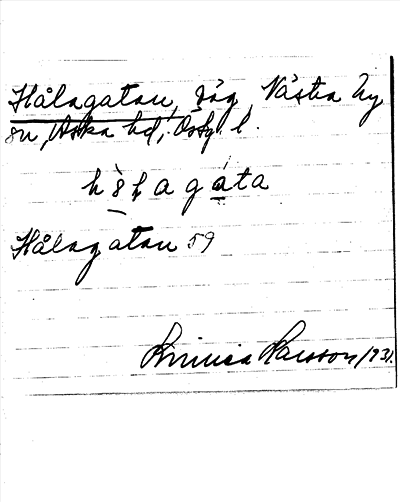 Hålagatan, väg, Västra Ny
sn, Aska hd, Östg. l.
hålagata
Hålagatan 59
Larsson 1931.